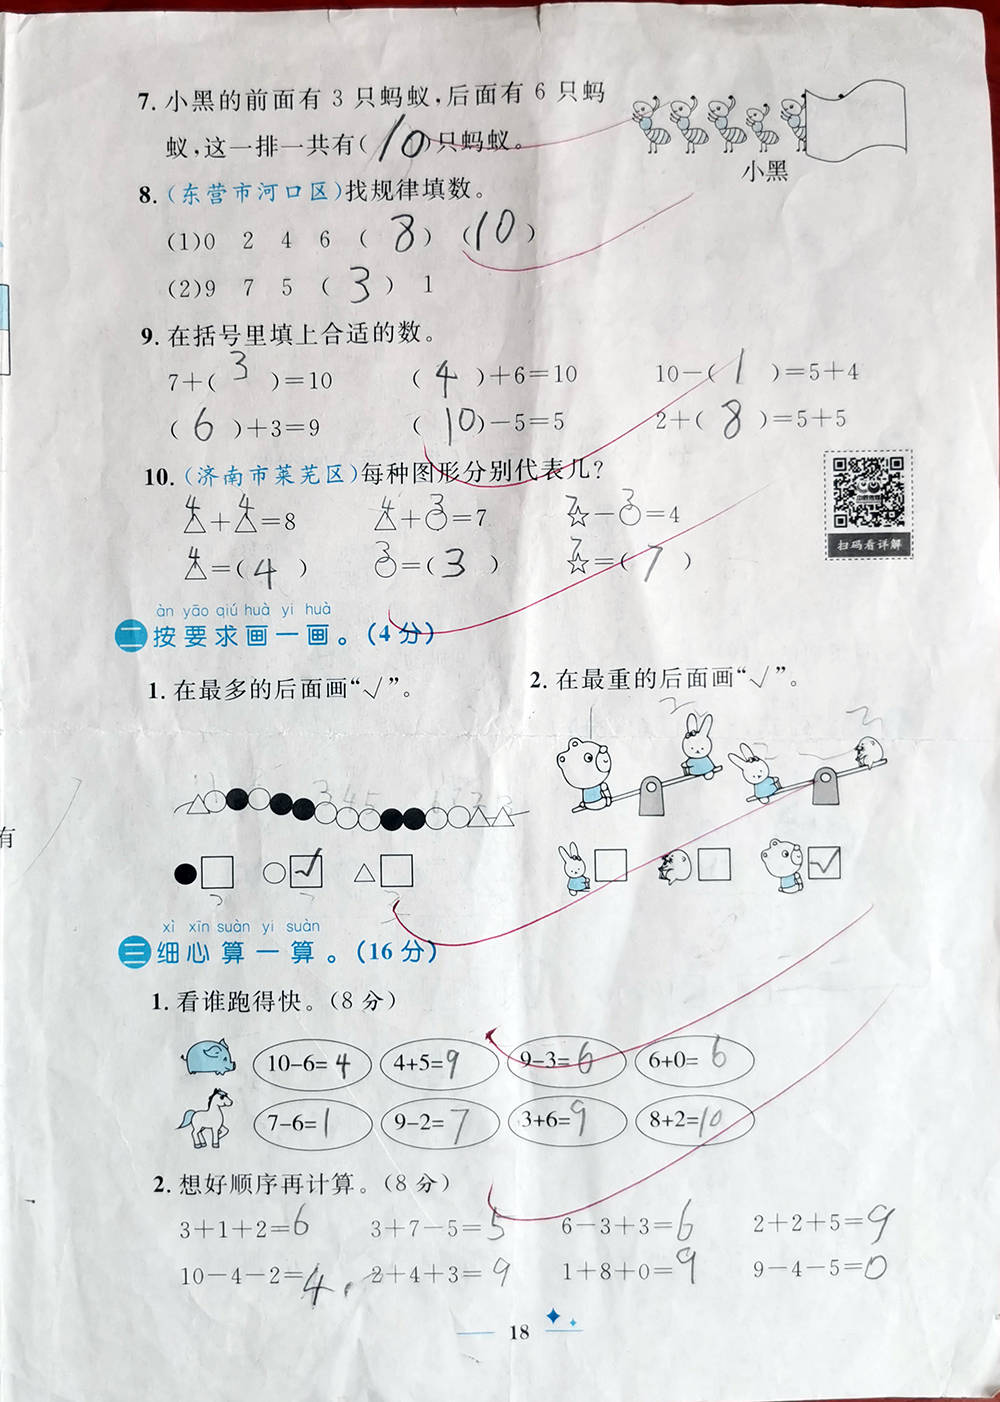 7. 小黑的前面有 3 只蚂蚁,后面有 6 只蚂
蚁,这一排一共有(10)只蚂蚁。
小黑
8.(东营市河口区)找规律填数。
(1)0 2 4 6 (8) (10)
(2)9 7 5 (3) 1
9. 在括号里填上合适的数。
7+(3)=10 (4)+6=10 10-(1)=5+4
(6)+3=9 (10)-5=5 2+(8)=5+5
10.(济南市莱芜区)每种图形分别代表几?
4 4 4 3 7 3
△+△=8 △+○=7 ☆-○=4
4 3 7
△=(4) ○=(3) ☆=(7)
扫码看详解
àn yāo qiú huà yi huà
二 按要求画一画。(4分)
1. 在最多的后面画“√”。
2. 在最重的后面画“√”。
●□ ○☑ △□
□ □ ☑
xì xīn suàn yi suàn
三 细心算一算。(16分)
1. 看谁跑得快。(8分)
10-6=4 4+5=9 9-3=6 6+0=6
7-6=1 9-2=7 3+6=9 8+2=10
2. 想好顺序再计算。(8分)
3+1+2=6 3+7-5=5 6-3+3=6 2+2+5=9
10-4-2=4 2+4+3=9 1+8+0=9 9-4-5=0
18
有